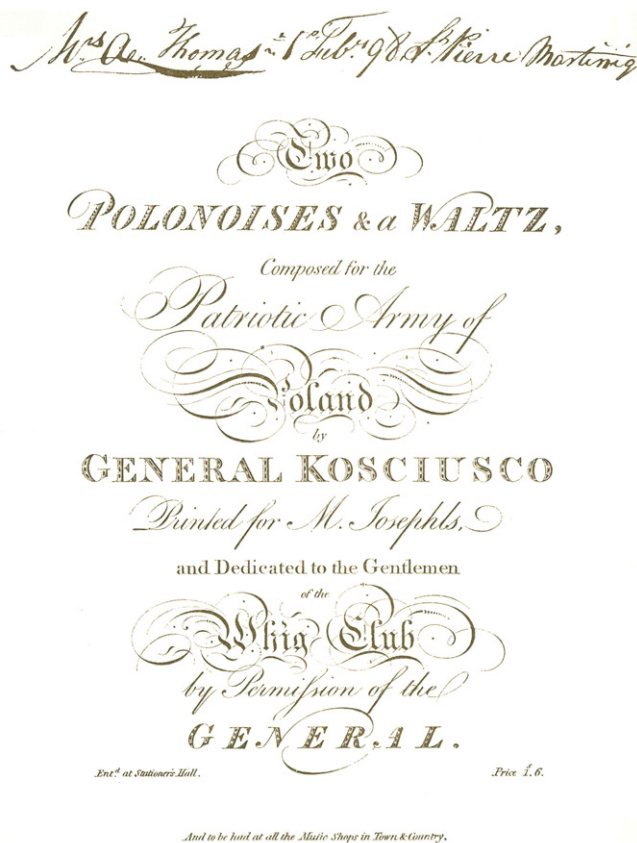 Mrs Ae. Thomas 1st Feb.y 98 St. Pierre Martiniq
Two
POLONOISES & a WALTZ,
Composed for the
Patriotic Army of
Poland
by
GENERAL KOSCIUSCO
Printed for M. Josephls,
and Dedicated to the Gentlemen
of the
Whig Club
by Permiſsion of the
GENERAL.
Ent.d at Stationer's Hall. Price 1.s6.
And to be had at all the Muſic Shops in Town & Country.